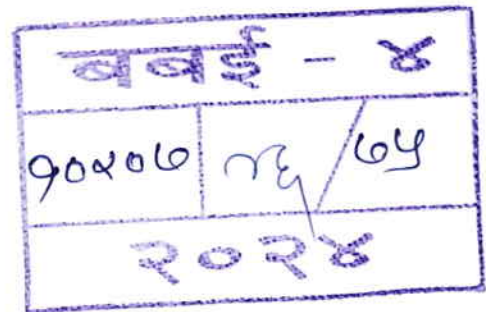 बबई - ४
१०४०७ / ७५
२०२४